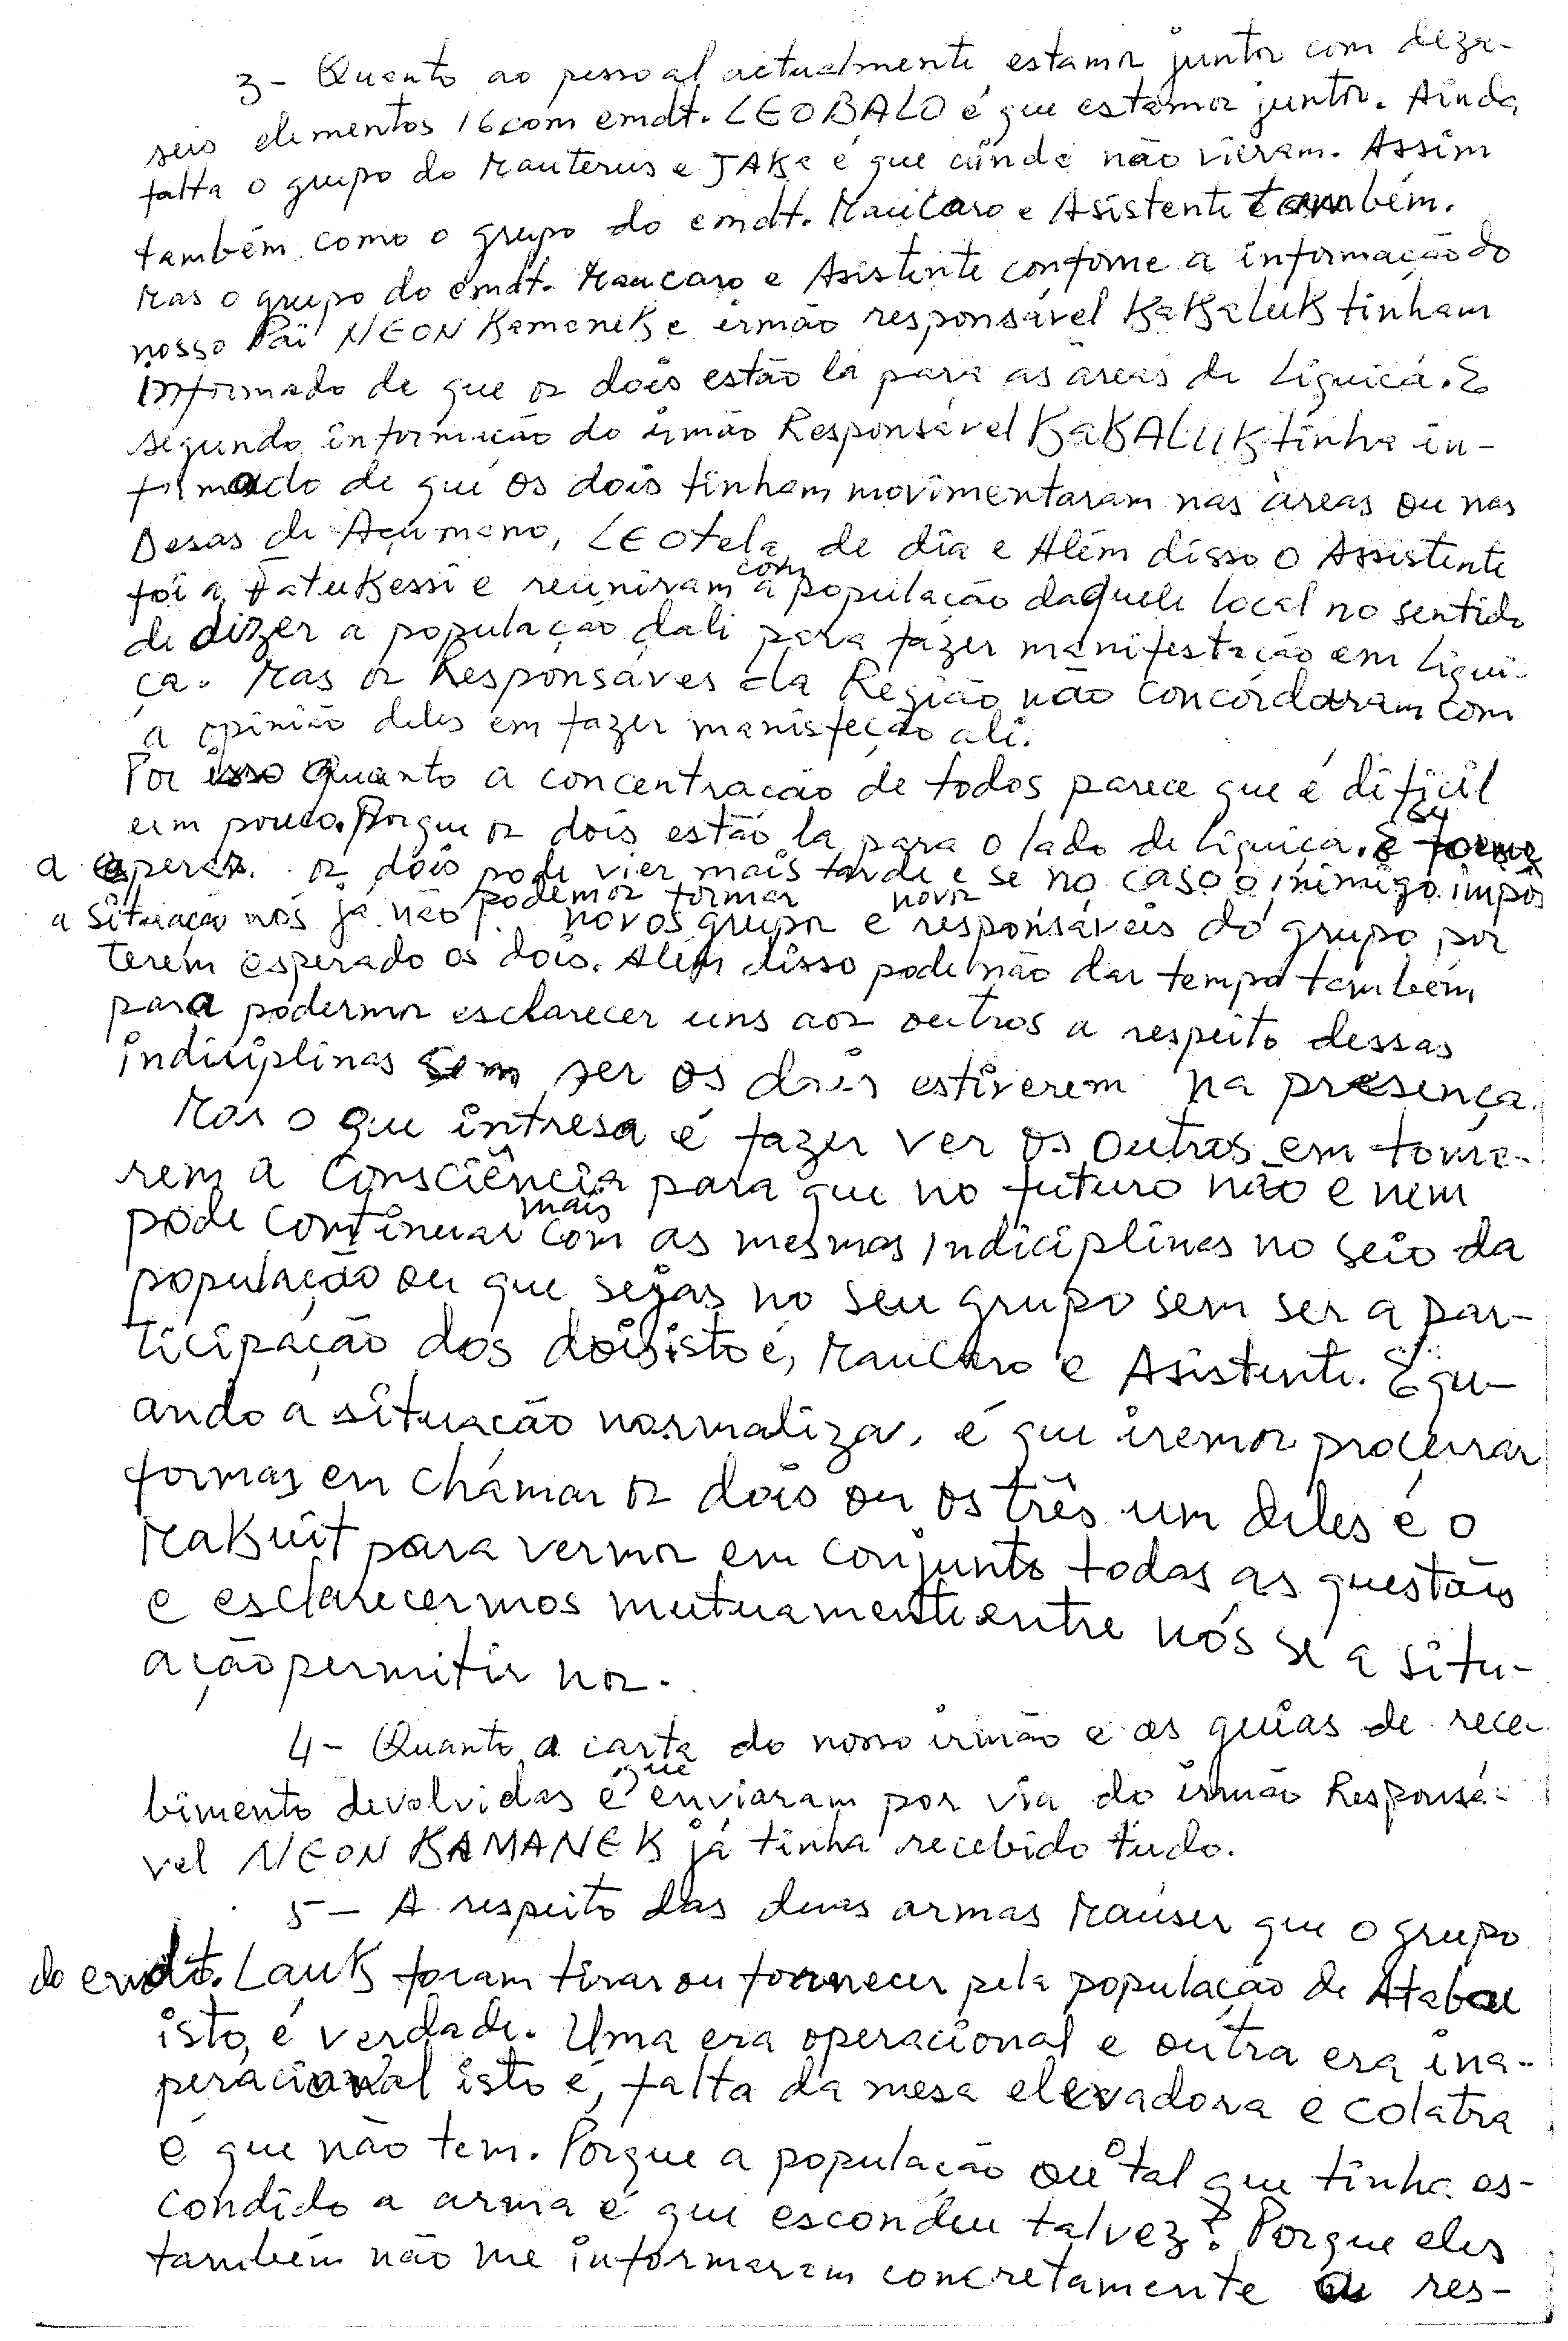 3- Quanto ao pessoal actualmente estamos juntos com deza-
seis elementos 16 com cmdt. LEOBALO é que estamos juntos. Ainda
falta o grupo do Mauterus e JAKa é que ainda não vieram. Assim
também como o grupo do cmdt. MauCaso e Asistente também.
Mas o grupo do cmdt. Maucaso e Asistente conforme a informação do
nosso Pai NEON Kamanek e irmão responsável KaKaluK tinham
informado de que os dois estão lá para as áreas de Liquiçá. E
segundo informação do irmão Responsável KaKALUK tinha in-
formado de que os dois tinham movimentaram nas áreas ou nas
Desas de Açumano, LEOtela, de dia e Além disso o Assistente
foi a FatuKessi e reuniram com a população daquele local no sentido
de dizer a população dali para fazer manifestação em Liqui-
ça. Mas os Responsáves da Região não concordaram com
a opinião deles em fazer manisfeção ali.
Por isso quanto a concentração de todos parece que é difícil
um pouco. Porque os dois estão lá para o lado de Liquiça. E se
a esperar. os dois pode vier mais tarde e se no caso o inimigo impôs
a situação nós já não podemos formar novos grupos e novos responsáveis do grupo por
terem esperado os dois. Além disso pode não dar tempo também
para podermos esclarecer uns aos outros a respeito dessas
indisiplinas sem ser os dois estiverem na presença.
Mas o que intresa é fazer ver os outros em toma-
rem a Consciência para que no futuro não e nem
pode continuar mais com as mesmas indiciplinas no seio da
população ou que sejas no seu grupo sem ser a par-
ticipação dos dois isto é, MauCaso e Asistente. E qu-
ando a situação normaliza, é que iremos procurar
formas em chamar os dois ou os três um deles é o
MaKuit para vermos em conjunto todas as questões
e esclarecermos mutuamente entre nós se a situ-
ação permitir nos.
4- Quanto a carta do nosso irmão e as guias de rece-
bimento devolvidas é que enviaram por via do irmão Responsá-
vel NEON KAMANEK já tinha recebido tudo.
5- A respeito das duas armas Mauser que o grupo
do cmdt. LauK foram tirar ou fornecer pela população de Atabae
isto é verdade. Uma era operacional e outra era ina-
peracional isto é, falta da mesa elevadora e colatra
é que não tem. Porque a população ou o tal que tinha es-
condido a arma é que escondeu talvez? Porque eles
também não me informaram concretamente a res-